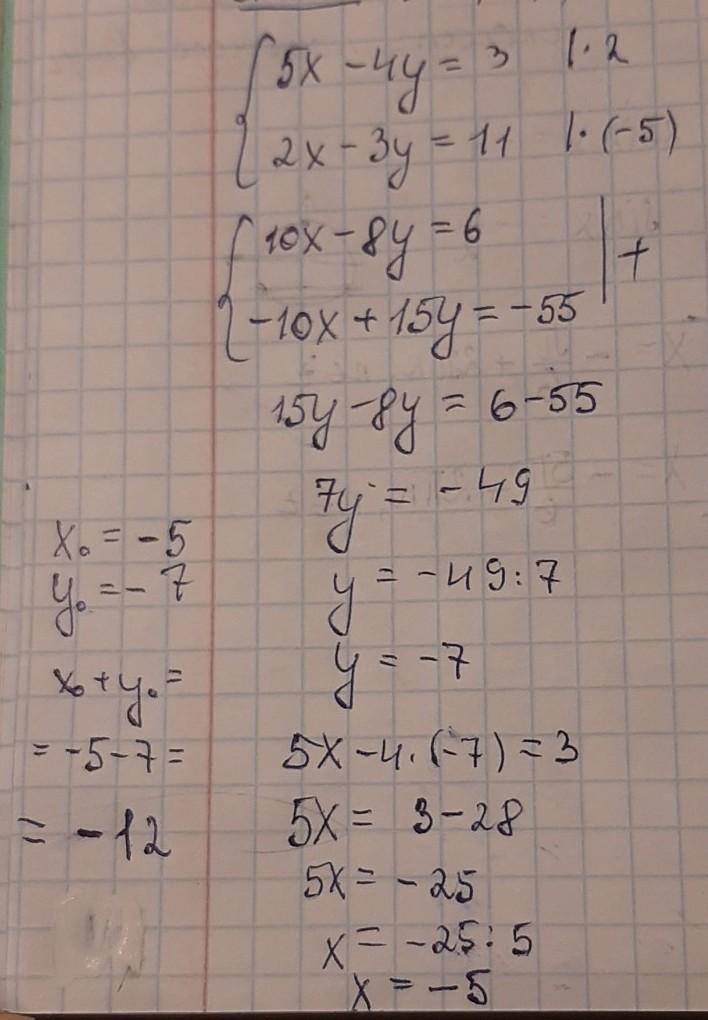 5x - 4y = 3 |· 2
2x - 3y = 11 |· (-5)
10x - 8y = 6
-10x + 15y = -55 | +
15y - 8y = 6 - 55
7y = - 49
y = -49 : 7
y = -7
5x - 4 · (-7) = 3
5x = 3 - 28
5x = - 25
x = -25 : 5
x = -5
x₀ = -5
y₀ = - 7
x₀ + y₀ =
= -5 - 7 =
= -12